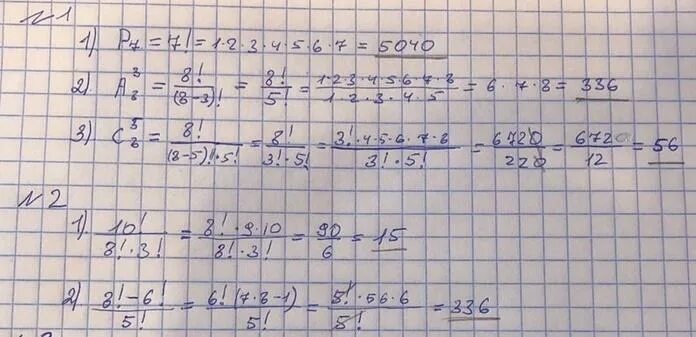 №1
1) P₇ = 7! = 1·2·3·4·5·6·7 = 5040
2) A₈³ = 8!/(8-3)! = 8!/5! = 1·2·3·4·5·6·7·8/1·2·3·4·5 = 6·7·8 = 336
3) C₈⁵ = 8!/(8-5)!·5! = 8!/3!·5! = 3!·4·5·6·7·8/3!·5! = 6720/220 = 672/12 = 56
№2
1) 10!/8!·3! = 8!·9·10/8!·3! = 90/6 = 15
2) 8!-6!/5! = 6!(7·8-1)/5! = 5!·56·6/5! = 336